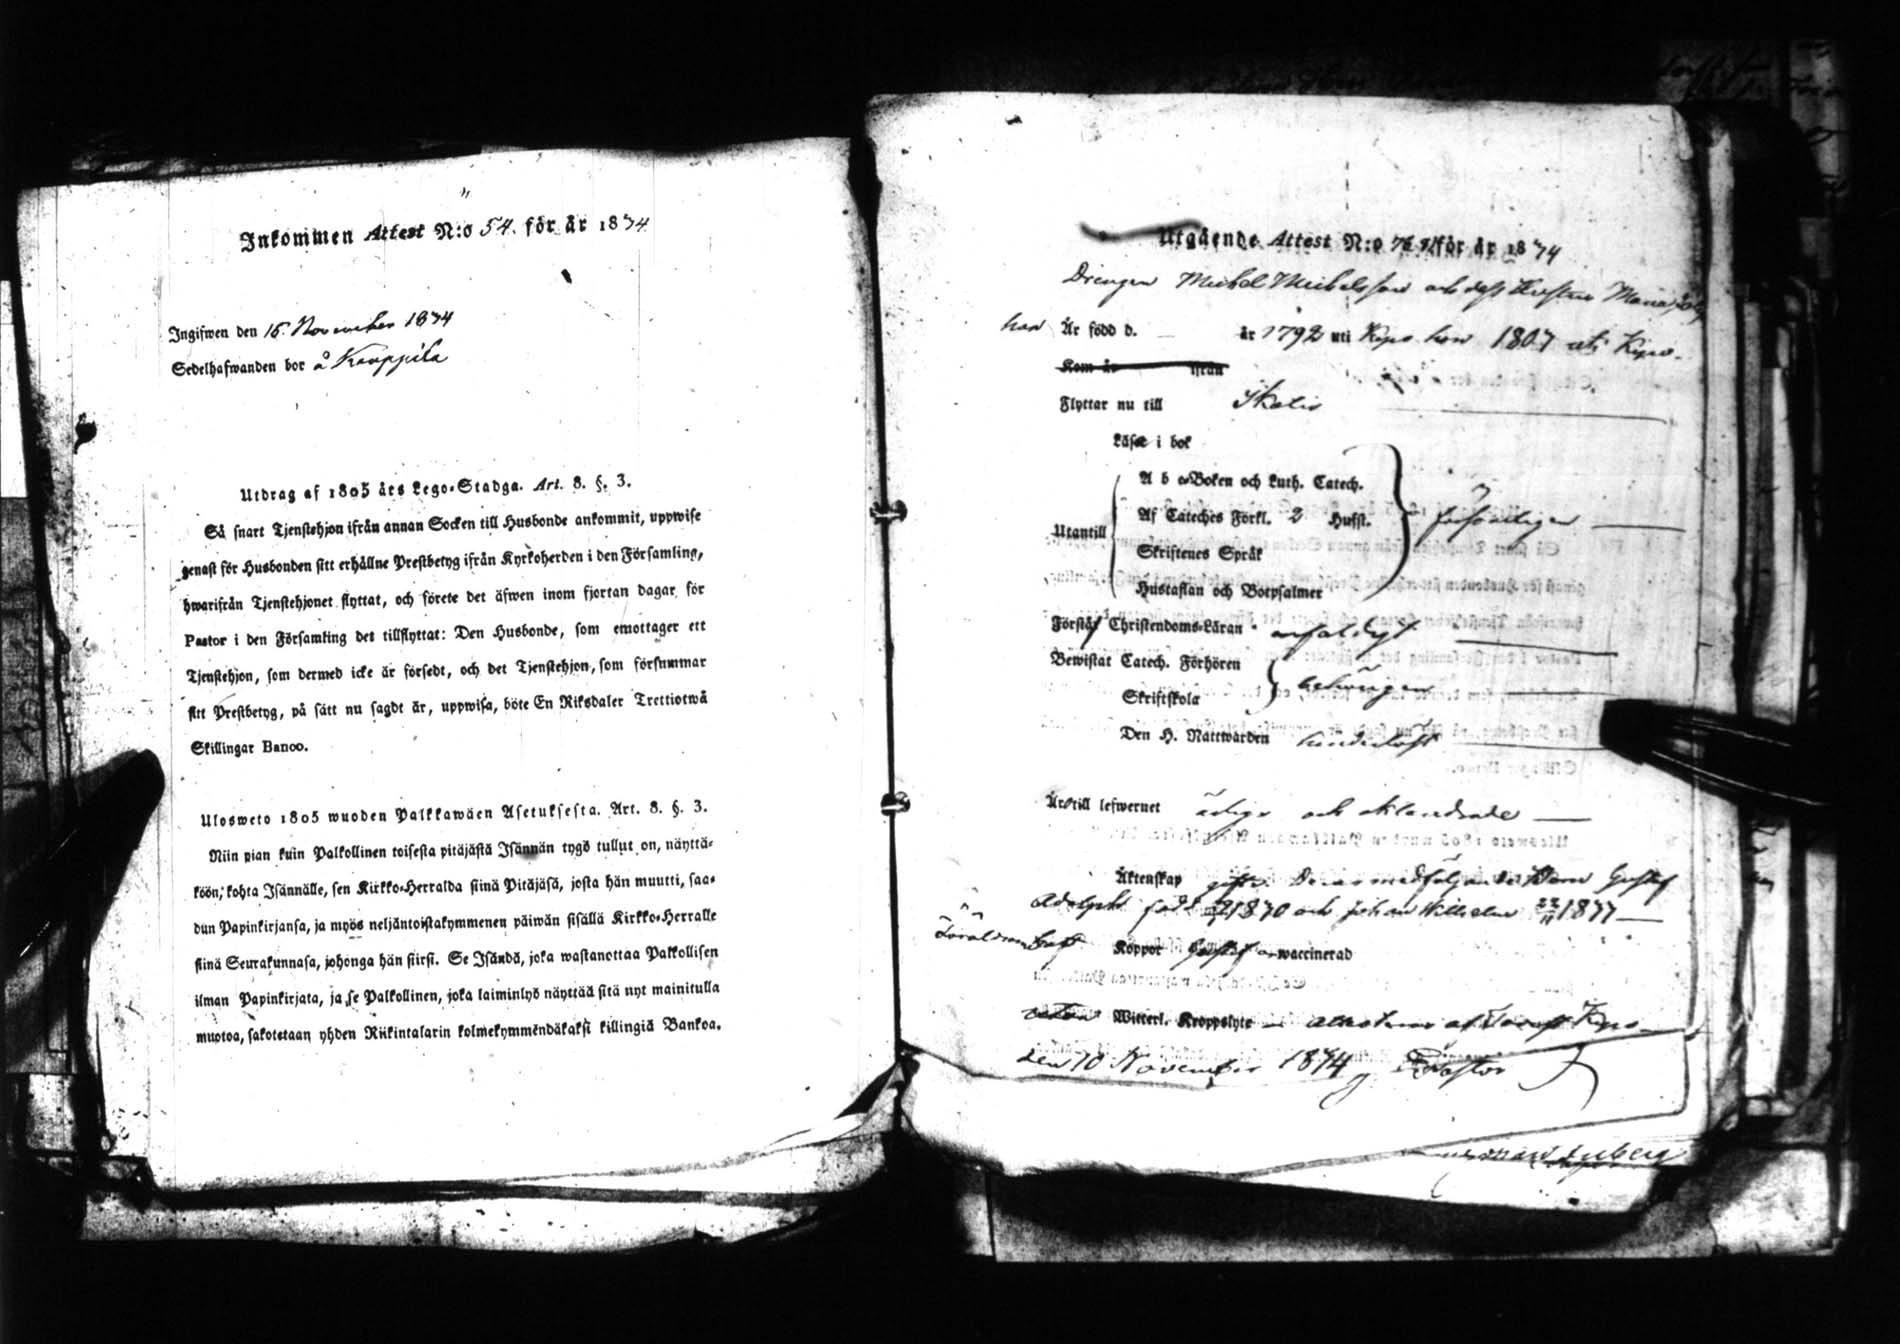 Inkommen Attest N:o 54. för år 1874
Ingifwen den 16. November 1874
Sedelhafwanden bor å Kauppila
Utdrag af 1805 års Lego-Stadga. Art. 8. §. 3.
Så snart Tjenstehjon ifrån annan Socken till Husbonde ankommit, uppwise
genast för Husbonden sitt erhållne Prestbetyg ifrån Kyrkoherden i den Församling,
hwarifrån Tjenstehjonet flyttat, och förete det äfwen inom fjortan dagar för
Pastor i den Församling det tillflyttat: Den Husbonde, som emottager ett
Tjenstehjon, som dermed icke är försedt, och det Tjenstehjon, som försummar
sitt Prestbetyg, på sätt nu sagdt är, uppwisa, böte En Riksdaler Trettiotwå
Skillingar Banco.
Ulosweto 1805 wuoden Palkkawäen Asetuksesta. Art. 8. §. 3.
Niin pian kuin Palkollinen toisesta pitäjästä Isännän tygö tullut on, näyttä-
köön, kohta Isännälle, sen Kirkko-Herralda siinä Pitäjäsä, josta hän muutti, saa-
dun Papinkirjansa, ja myös neljäntoistakymmenen päiwän sisällä Kirkko-Herralle
siinä Seurakunnasa, johonga hän siirsi. Se Isändä, joka wastanottaa Palkollisen
ilman Papinkirjata, ja se Palkollinen, joka laiminlyö näyttää sitä nyt mainitulla
muotoa, sakotetaan yhden Riikintalarin kolmekymmendäkaksi killingiä Bankoa.
Utgående Attest N:o för år 1874
Drengen Michel Michelsson och dess Hustru Maria
han Är född d. — år 1792 uti Kypo hon 1807 uti Kypo
Kom år ifrån
Flyttar nu till Ikalis
Läse i bok
A b c-Boken och Luth. Catech.
Af Cateches Förkl. 2 Husst.
Utantill
Skriftenes Språk
Hustaflan och Botpsalmer
Förstår Christendoms-Läran
Bewistat Catech. Förhören
Skriftskola
Den H. Nattwarden
Är till lefwernet ärlige och oklandrade
Äktenskap gifte. Deras medföljande Barn Gustaf
Adolph född 1870 och Johan Wilhelm
Föräldrarne haft Koppor Gustaf waccinerad
utan Witterl. Kroppslyte
den 10 November 1874
Pastor